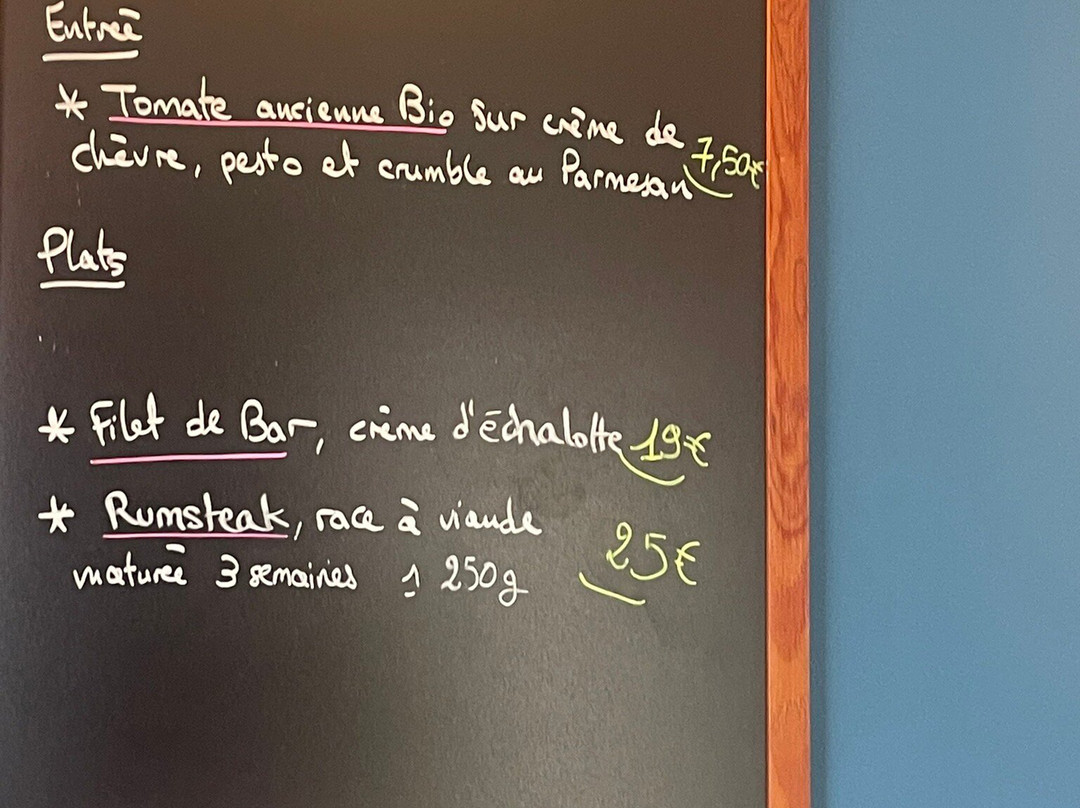 Entrée
* Tomate ancienne Bio sur crème de
chèvre, pesto et crumble au Parmesan 7,50€
Plats
* Filet de Bar, crème d'échalotte 19€
* Rumsteak, race à viande
maturée 3 semaines ± 250g 25€